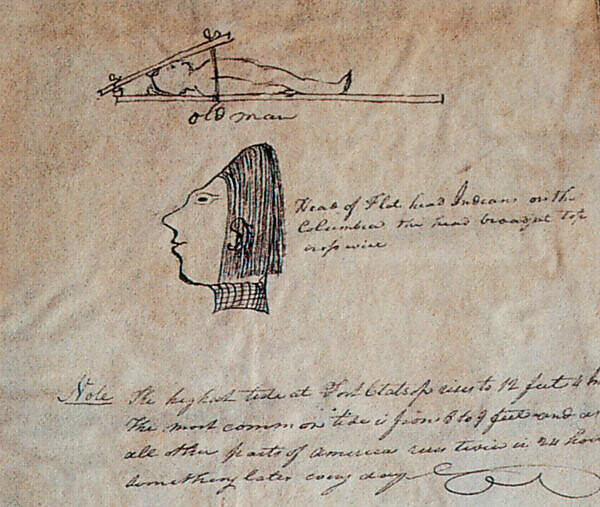 old man
Head of Flat head Indians on the
Columbia the head brought top
crosswise
Note The highest tide at Fort Clatsop rises to 12 feet 4
The most common tide is from 8 to 9 feet and
all other parts of America rises twice in 24
something later every day